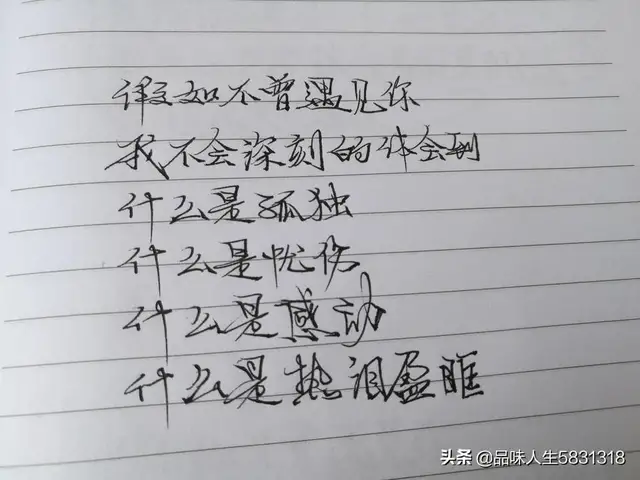 假如不曾遇见你
我不会深刻的体会到
什么是孤独
什么是忧伤
什么是感动
什么是热泪盈眶
头条 @品味人生5831318